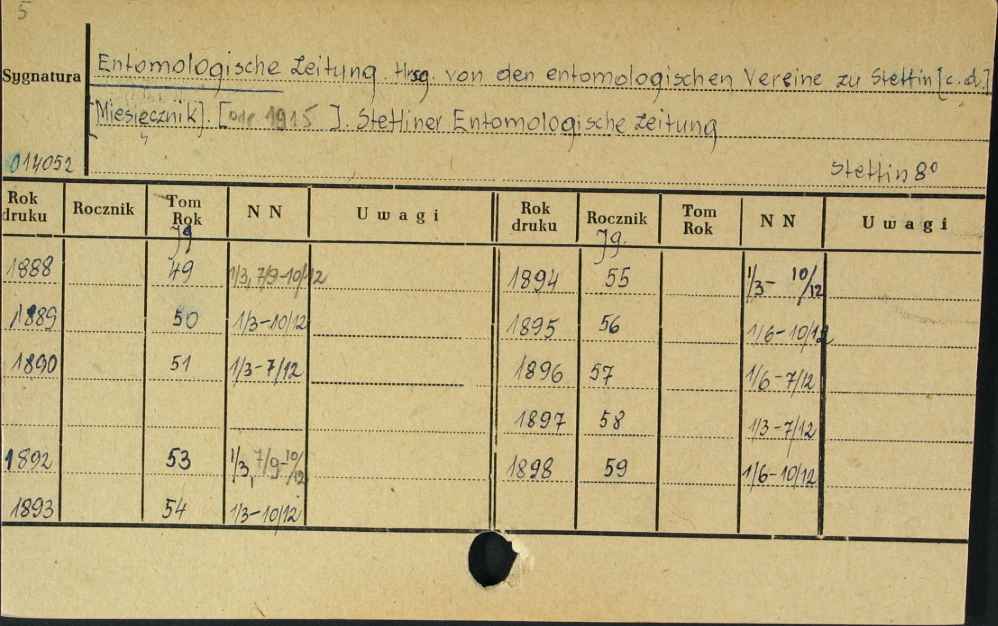 5
Sygnatura
Entomologische Zeitung. Hrsg. von den entomologischen Vereine zu Stettin [c.d.]
[Miesięcznik]. [ 1915 ]. Stettiner Entomologische Zeitung
014052 Stettin 8°
Rok druku Rocznik Tom Rok N N Uwagi Rok druku Rocznik Tom Rok N N Uwagi
Jg Jg.
1888 49 1/3, 7/9-10/12 1894 55 1/3- 10/12
1889 50 1/3-10/12 1895 56 1/6-10/12
1890 51 1/3-7/12 1896 57 1/6-7/12
1897 58 1/3-7/12
1892 53 1/3, 7/9-10/12 1898 59 1/6-10/12
1893 54 1/3-10/12